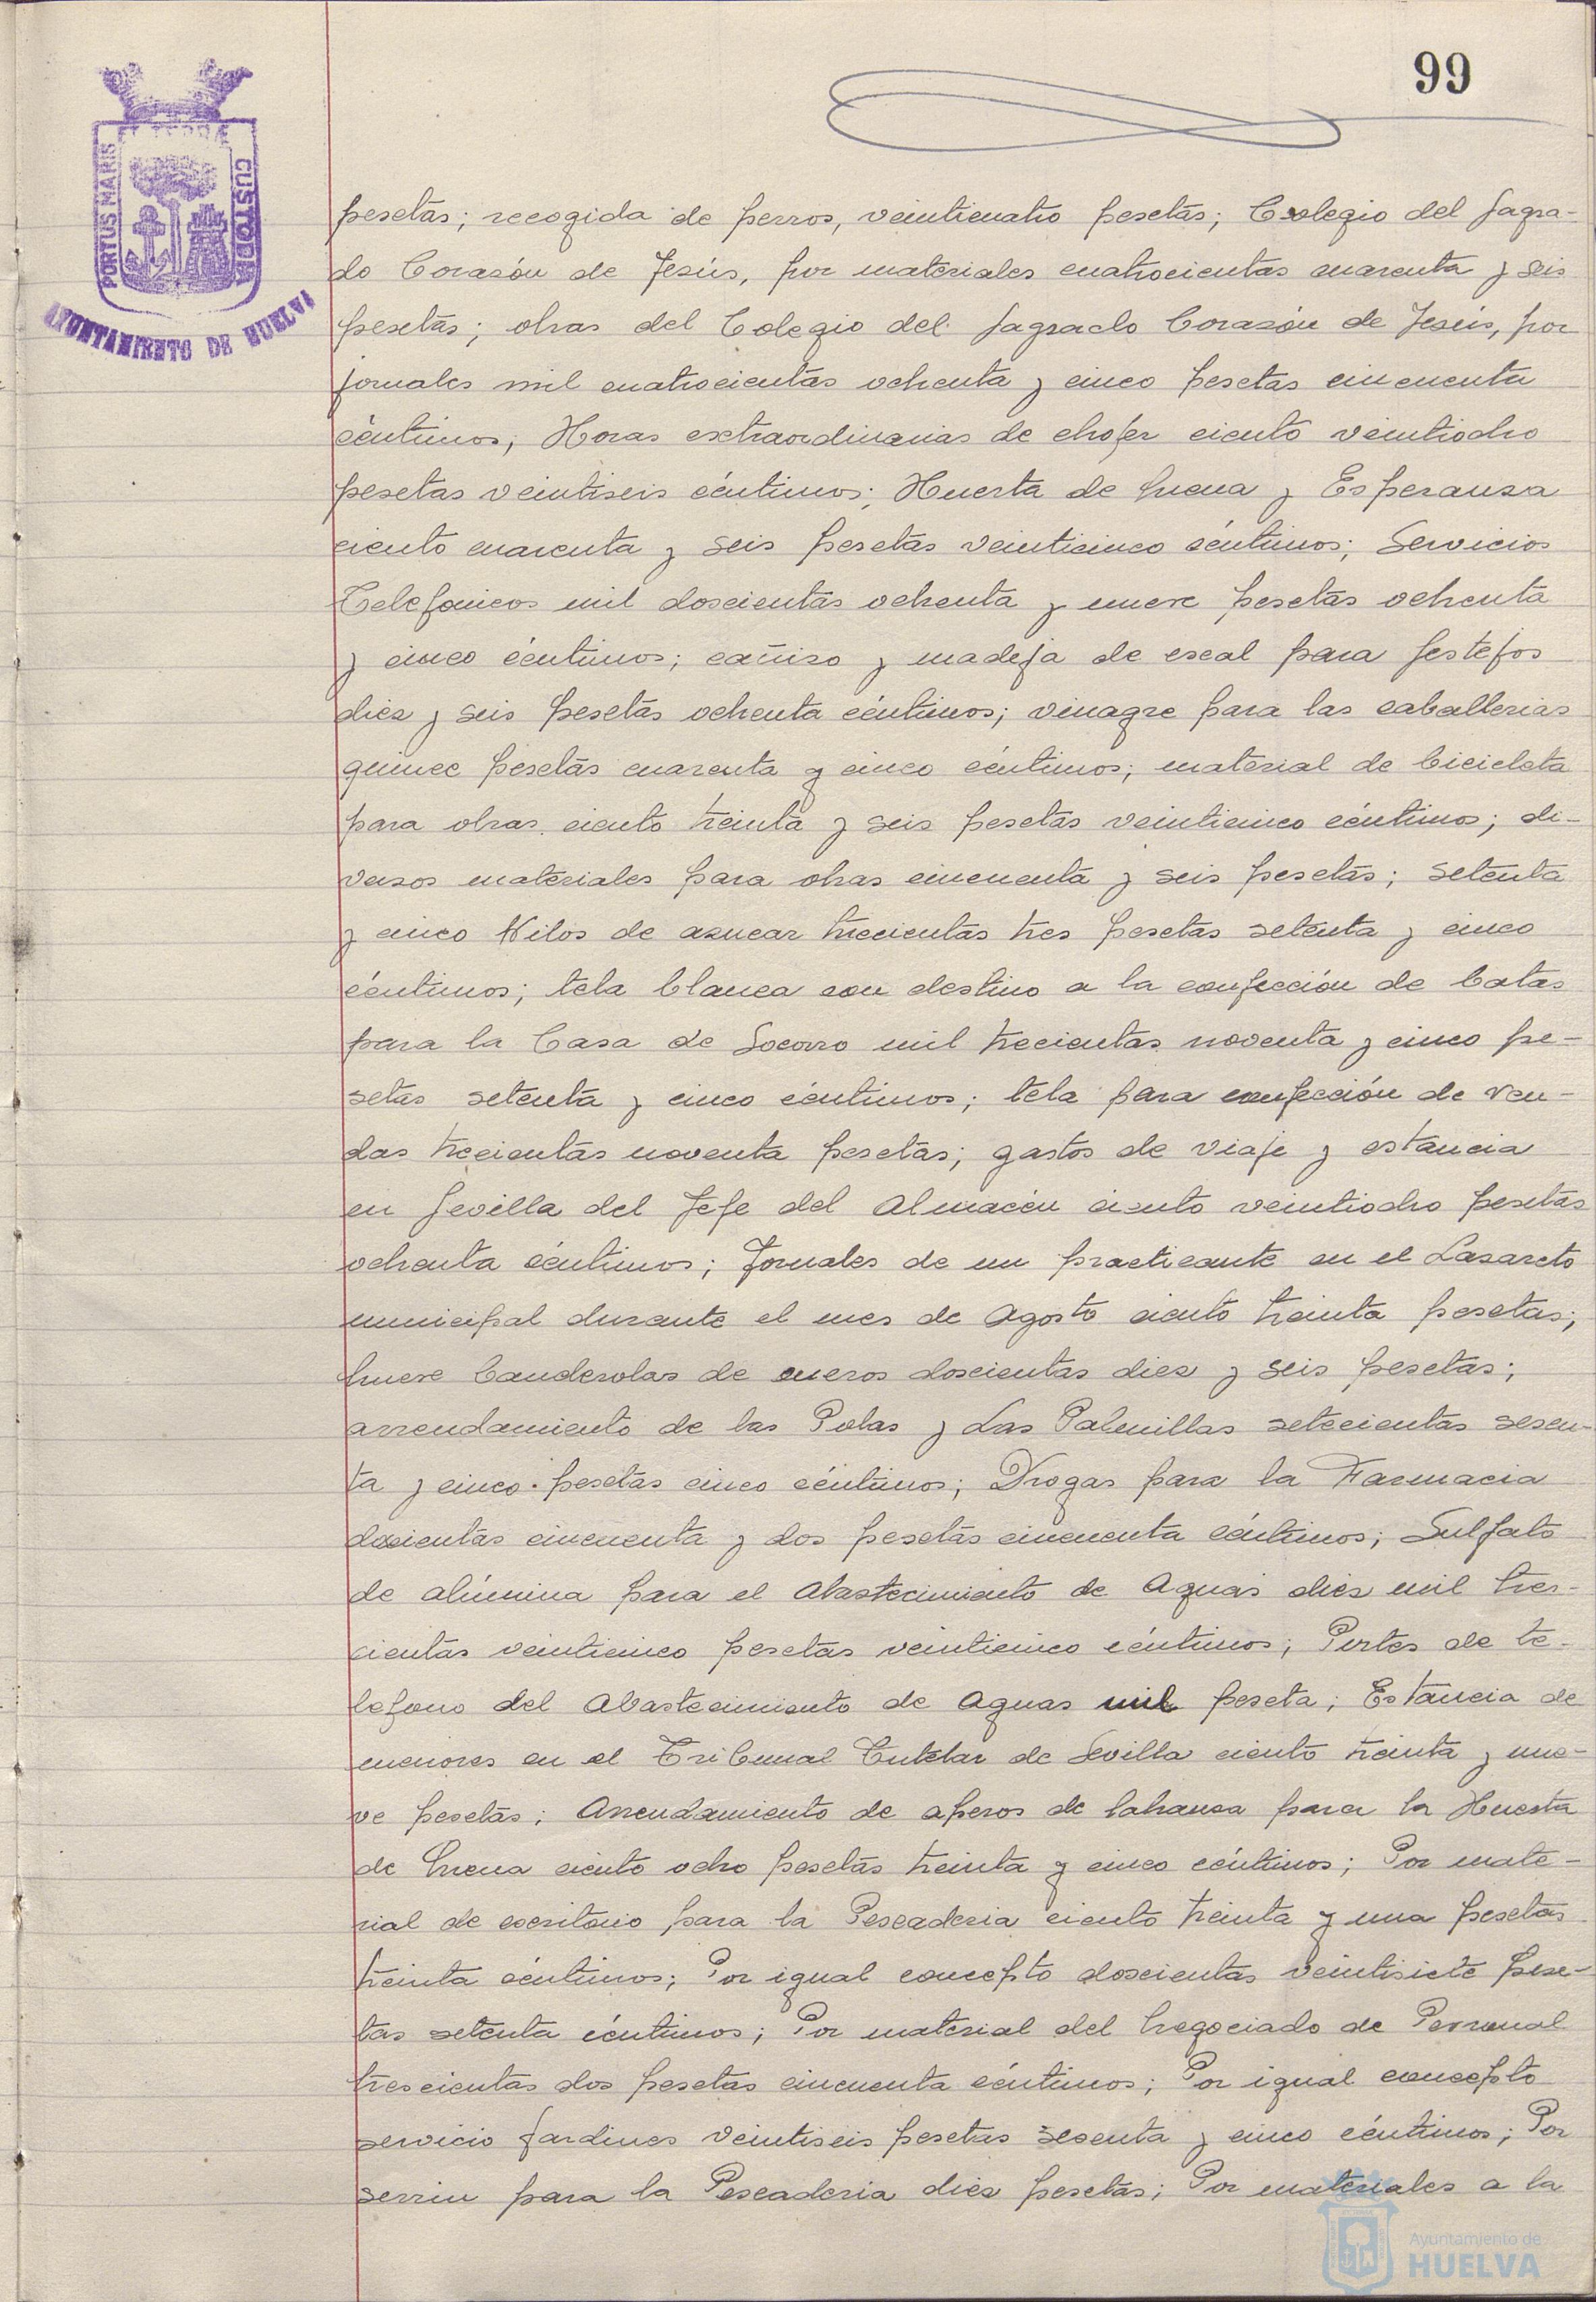 99
PORTUS MARIS
CUSTODIA
AYUNTAMIENTO DE HUELVA
pesetas; recogida de perros, veinticuatro pesetas; Colegio del Sagra-
do Corazón de Jesús, por materiales cuatrocientas cuarenta y seis
pesetas; obras del Colegio del Sagrado Corazón de Jesús, por
jornales mil cuatrocientas ochenta y cinco pesetas cincuenta
céntimos; Horas extraordinarias de chofer ciento veintiocho
pesetas veintiseis céntimos; Huerta de Mena y Esperanza
ciento cuarenta y seis pesetas veinticinco céntimos; Servicios
Telefonicos mil doscientas ochenta y nueve pesetas ochenta
y cinco céntimos; cañizo y madeja de escal para festejos
diez y seis pesetas ochenta céntimos; vinagre para las caballerias
quince pesetas cuarenta y cinco céntimos; material de bicicleta
para obras ciento treinta y seis pesetas veinticinco céntimos; di-
versos materiales para obras cincuenta y seis pesetas; setenta
y cinco Kilos de azucar trecientas tres pesetas setenta y cinco
céntimos; tela blanca con destino a la confección de batas
para la Casa de Socorro mil trecientas noventa y cinco pe-
setas setenta y cinco céntimos; tela para confección de ven-
das trecientas noventa pesetas; gastos de viaje y estancia
en Sevilla del Jefe del Almacén ciento veintiocho pesetas
ochenta céntimos; Jornales de un practicante en el Lazareto
municipal durante el mes de Agosto ciento treinta pesetas;
nueve banderolas de cueros doscientas diez y seis pesetas;
arrendamiento de las Polas y Las Palmillas setecientas sesen-
ta y cinco pesetas cinco céntimos; Drogas para la Farmacia
doscientas cincuenta y dos pesetas cincuenta céntimos; Sulfato
de alúmina para el Abastecimiento de Aguas diez mil tres-
cientas veinticinco pesetas veinticinco céntimos; Portes de te-
lefono del Abastecimiento de Aguas mil peseta; Estancia de
menores en el Tribunal Tutelar de Sevilla ciento treinta y nue-
ve pesetas; Arrendamiento de aperos de labranza para la Huerta
de Mena ciento ocho pesetas treinta y cinco céntimos; Por mate-
rial de escritorio para la Pescaderia ciento treinta y una pesetas
treinta céntimos; Por igual concepto doscientas veintisiete pese-
tas setenta céntimos; Por material del Negociado de Personal
trescientas dos pesetas cincuenta céntimos; Por igual concepto
servicio Jardines veintiseis pesetas sesenta y cinco céntimos; Por
serrin para la Pescaderia diez pesetas; Por materiales a la
Ayuntamiento de
HUELVA